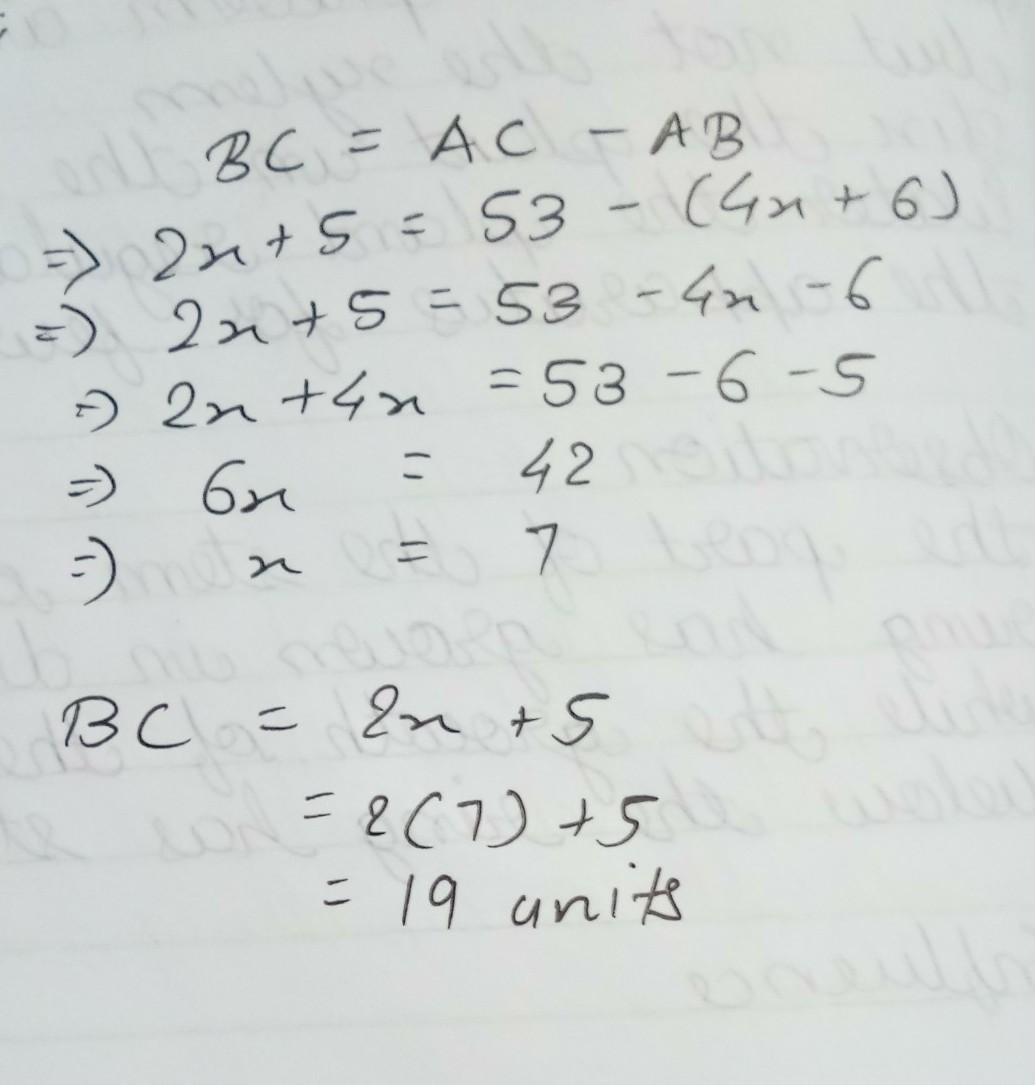 BC = AC - AB
=> 2x + 5 = 53 - (4x + 6)
=> 2x + 5 = 53 - 4x - 6
=> 2x + 4x = 53 - 6 - 5
=> 6x = 42
=> x = 7
BC = 2x + 5
= 2(7) + 5
= 19 units